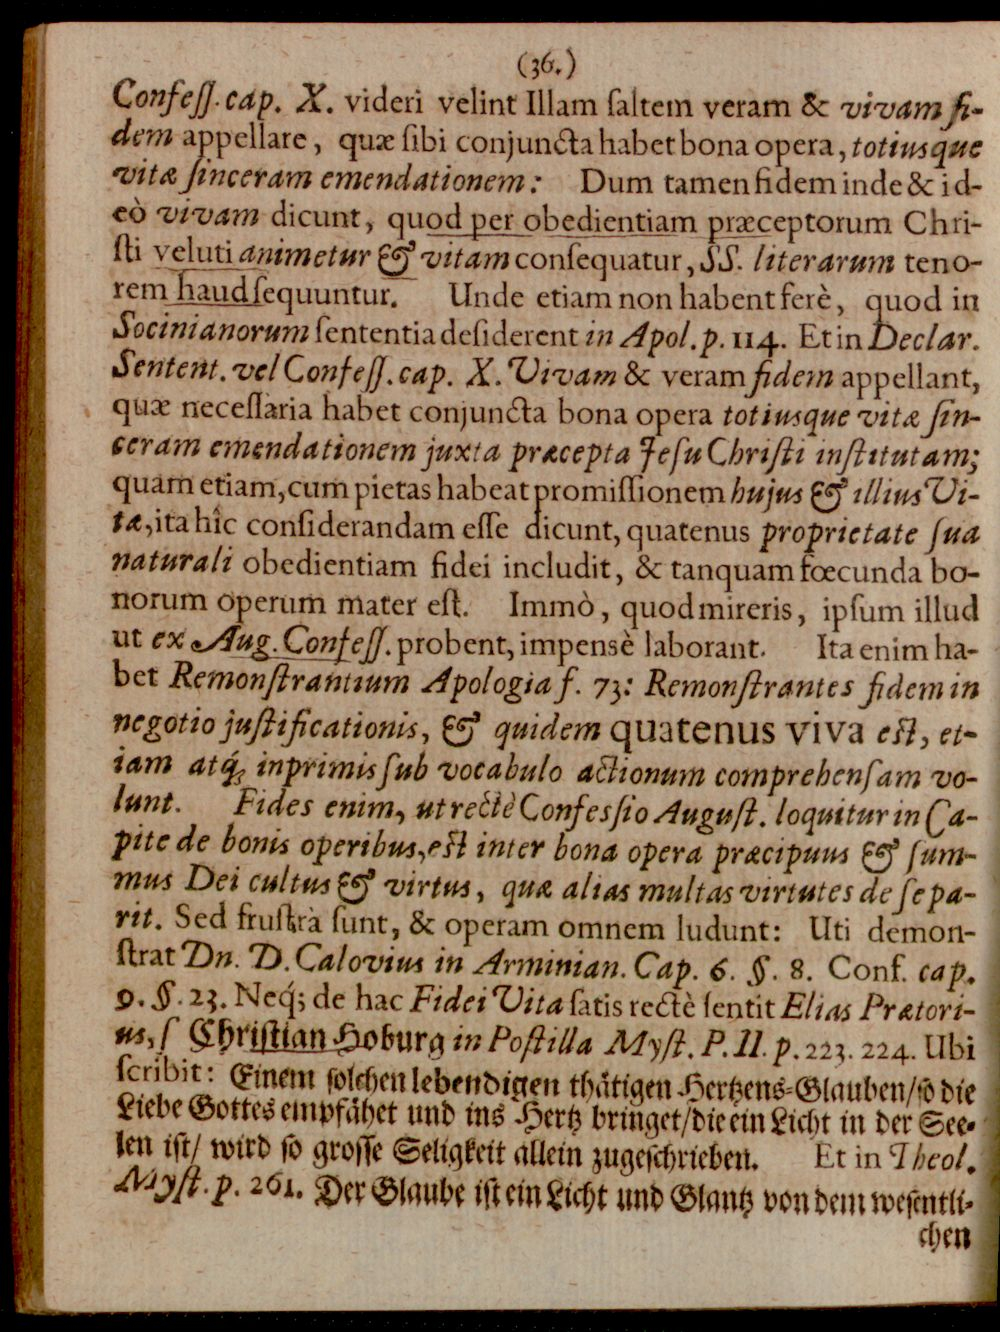 (36.)
Confeſſ. cap. X. videri velint Illam ſaltem veram & vivam fi-
dem appellare, quæ ſibi conjuncta habet bona opera, totiusque
vitæ ſinceram emendationem: Dum tamen fidem inde & id-
eò vivam dicunt, quod per obedientiam præceptorum Chri-
ſti veluti animetur & vitam conſequatur, SS. literarum teno-
rem haud ſequuntur. Unde etiam non habent ferè, quod in
Socinianorum ſententia deſiderent in Apol. p. 114. Et in Declar.
Sentent. vel Confeſſ. cap. X. Vivam & veram fidem appellant,
quæ neceſſaria habet conjuncta bona opera totiusque vitæ ſin-
ceram emendationem juxta præcepta Jeſu Chriſti inſtitutam;
quam etiam, cum pietas habeat promiſſionem hujus & illius Vi-
tæ, ita hîc conſiderandam eſſe dicunt, quatenus proprietate ſua
naturali obedientiam fidei includit, & tanquam fœcunda bo-
norum operum mater eſt. Immò, quod mireris, ipſum illud
ut ex Aug. Confeſſ. probent, impensè laborant. Ita enim ha-
bet Remonſtrantium Apologia f. 73: Remonſtrantes fidem in
negotio juſtificationis, & quidem quatenus viva eſt, et-
iam atq́; inprimis ſub vocabulo actionum comprehenſam vo-
lunt. Fides enim, ut rectè Confesſio Auguſt. loquitur in Ca-
pite de bonis operibus, eſt inter bona opera præcipuus & ſum-
mus Dei cultus & virtus, quæ alias multas virtutes de ſe pa-
rit. Sed fruſtrà ſunt, & operam omnem ludunt: Uti demon-
ſtrat Dn. D. Calovius in Arminian. Cap. 6. §. 8. Conf. cap.
9. §. 23. Neq́; de hac Fidei Vita ſatis rectè ſentit Elias Prætori-
us, ſ Chriſtian Hoburg in Poſtilla Myſt. P. II. p. 223. 224. Ubi
ſcribit: Einem ſolchen lebendigen thätigen Hertzens-Glauben/ ſo die
Liebe Gottes empfähet und ins Hertz bringet/ die ein Licht in der See-
len iſt/ wird ſo groſſe Seligkeit allein zugeſchrieben. Et in Theol.
Myſt. p. 261. Der Glaube iſt ein Licht und Glantz von dem weſentli-
chen